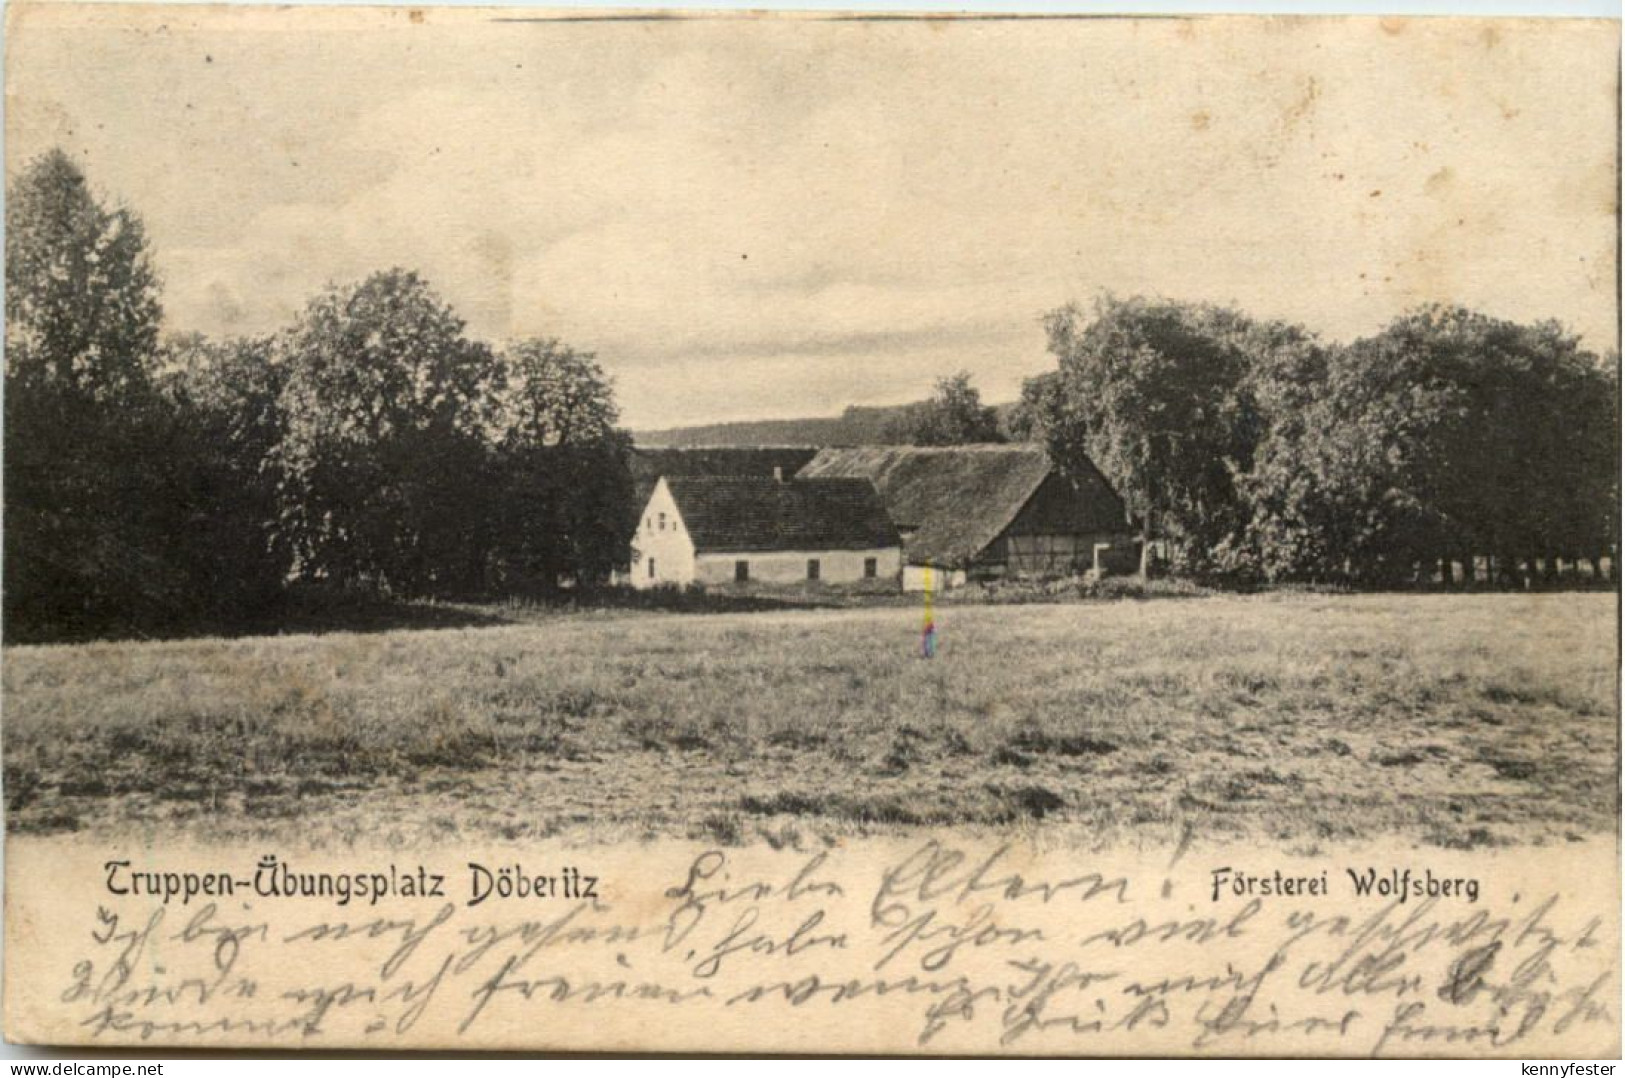 Truppen-Übungsplatz Döberitz
Försterei Wolfsberg
Liebe Eltern!
Ich bin noch gesund, habe schon viel geschwitzt
Würde mich freuen wenn Ihr mich Alle besuchen
kommt. Es Grüßt Euer Emil
delcampe.net
kennyfester